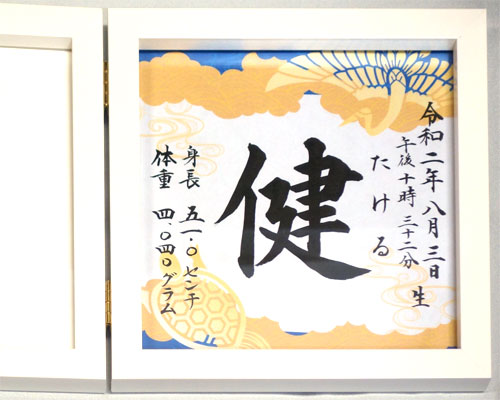 令和二年八月三日 生
午後十時三十二分
たける
健
身長 五一.〇センチ
体重 四.〇四〇グラム